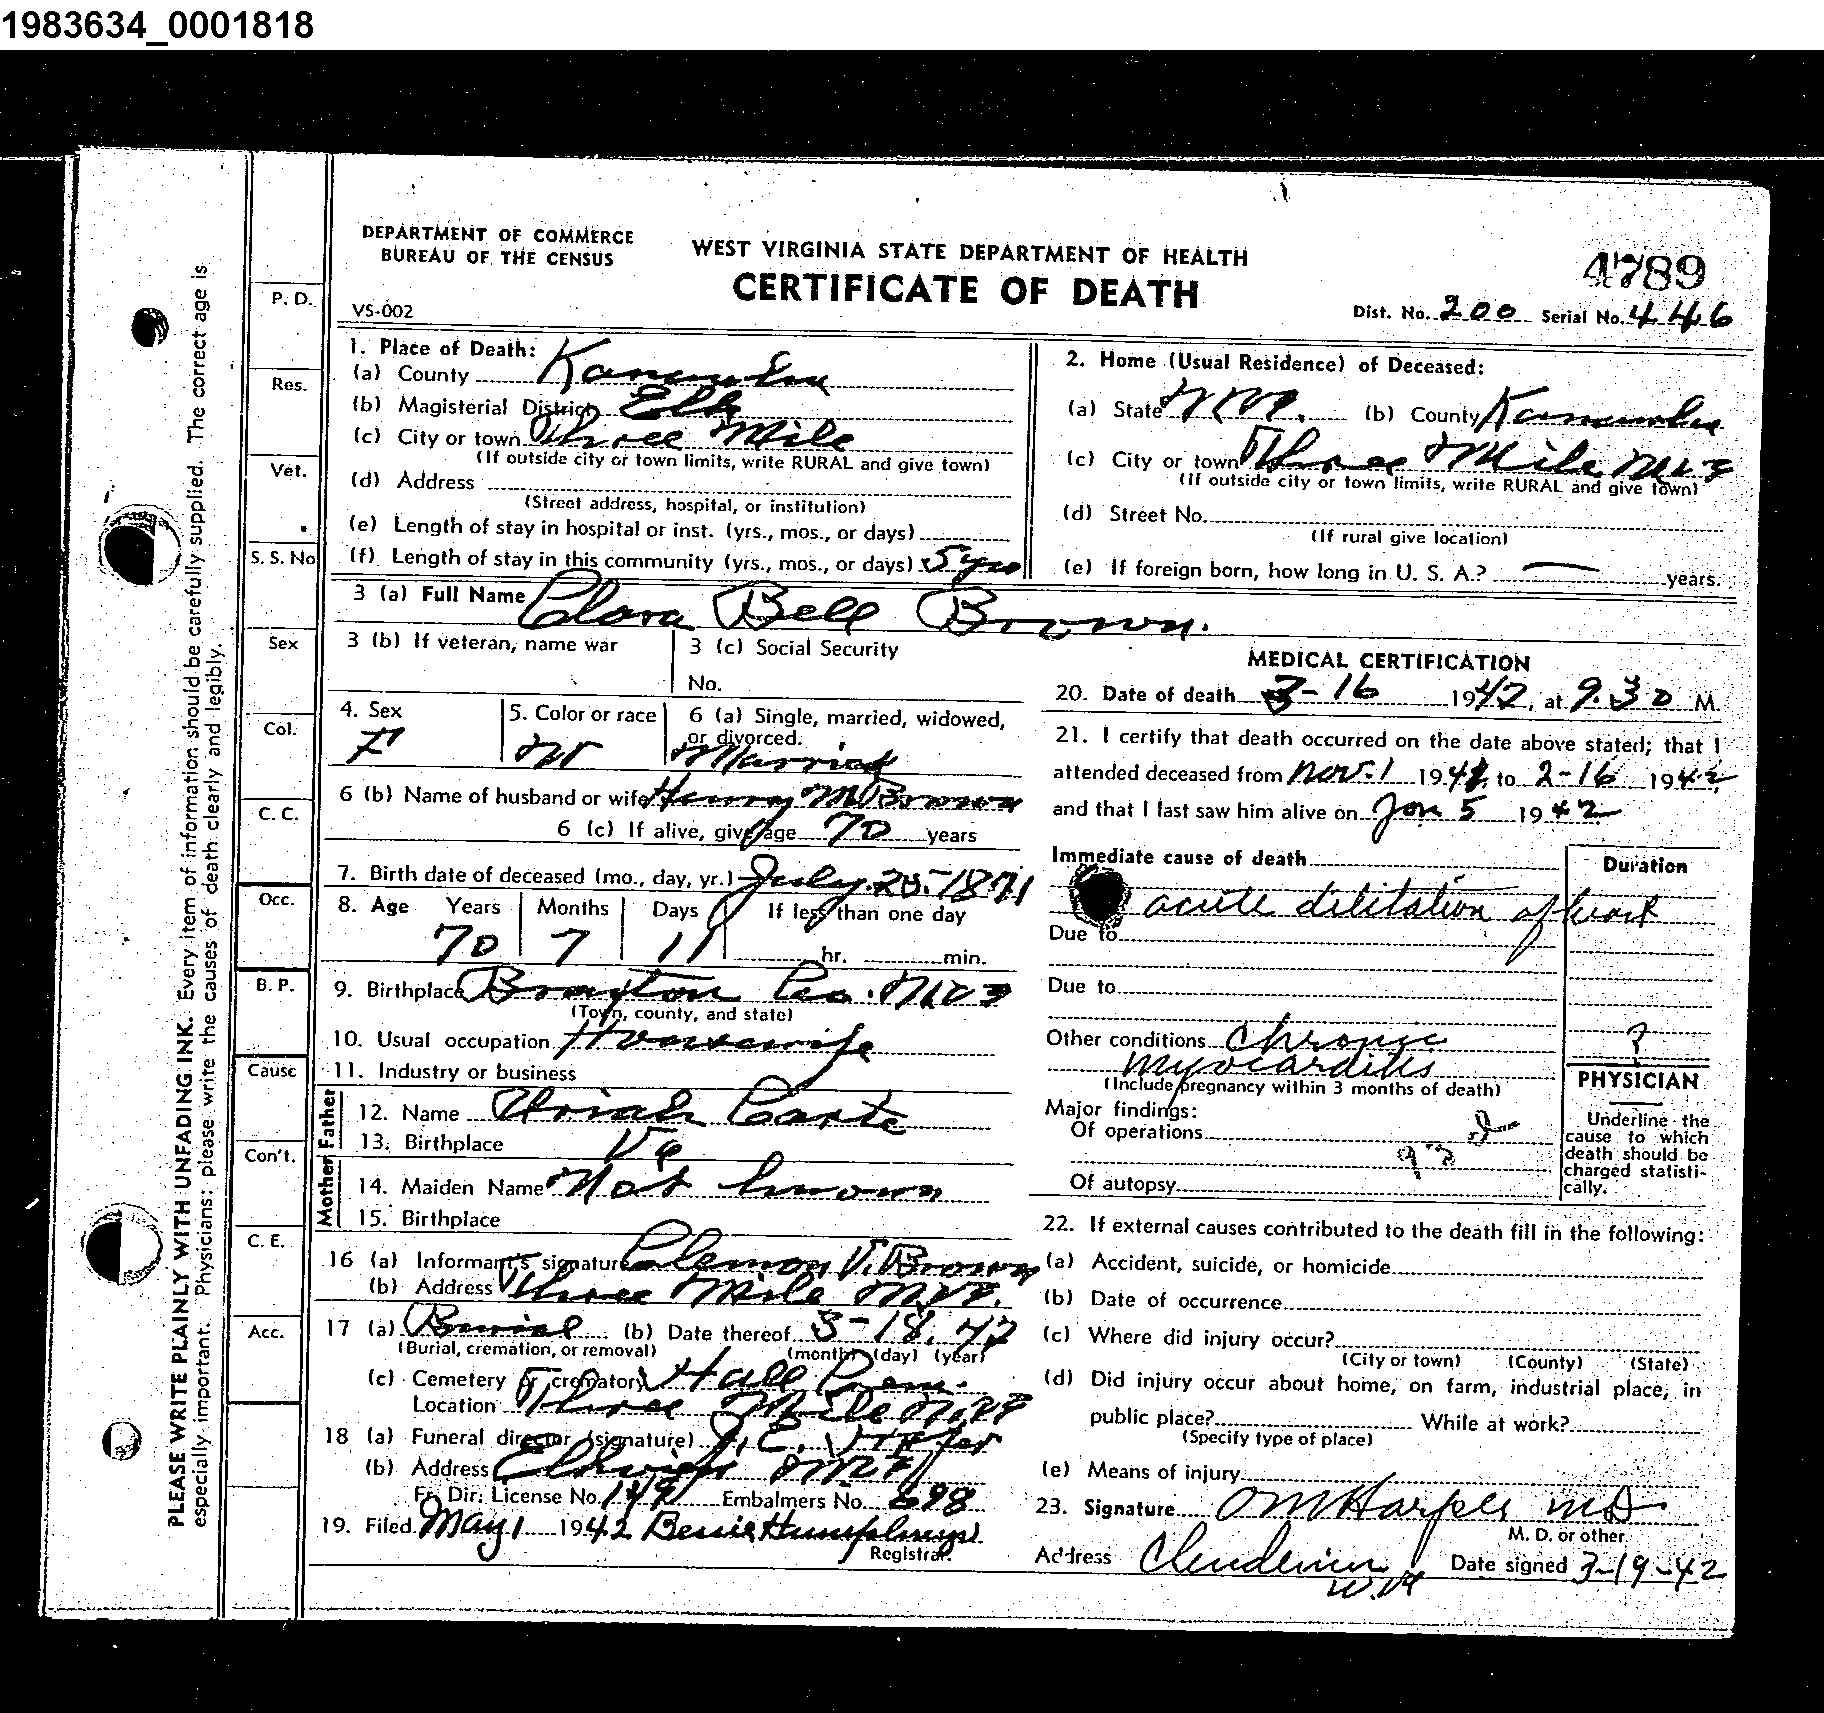 1983634_0001818
DEPARTMENT OF COMMERCE
BUREAU OF THE CENSUS
WEST VIRGINIA STATE DEPARTMENT OF HEALTH
CERTIFICATE OF DEATH
4789
VS-002
Dist. No. 200 Serial No. 446
PLEASE WRITE PLAINLY WITH UNFADING INK. Every item of information should be carefully supplied. The correct age is
especially important. Physicians: please write the causes of death clearly and legibly.
P. D.
Res.
Vet.
S. S. No
Sex
Col.
C. C.
Occ.
B. P.
Cause
Con't.
C. E.
Acc.
1. Place of Death:
(a) County Kanawha
(b) Magisterial District Elk
(c) City or town Three Mile
(If outside city or town limits, write RURAL and give town)
(d) Address
(Street address, hospital, or institution)
(e) Length of stay in hospital or inst. (yrs., mos., or days)
(f) Length of stay in this community (yrs., mos., or days) 5 yrs
2. Home (Usual Residence) of Deceased:
(a) State W.Va. (b) County Kanawha
(c) City or town Three Mile W.Va
(If outside city or town limits, write RURAL and give town)
(d) Street No.
(If rural give location)
(e) If foreign born, how long in U. S. A.? — years.
3 (a) Full Name Clara Bell Brown.
3 (b) If veteran, name war
3 (c) Social Security
No.
4. Sex
F
5. Color or race
W
6 (a) Single, married, widowed,
or divorced.
Married
6 (b) Name of husband or wife Henry M Brown
6 (c) If alive, give age 70 years
7. Birth date of deceased (mo., day, yr.) July 25-1871
8. Age Years Months Days If less than one day
70 7 11 hr. min.
9. Birthplace Braxton Co. W.Va
(Town, county, and state)
10. Usual occupation Housewife
11. Industry or business
Father
12. Name Uriah Carte
13. Birthplace Va
Mother
14. Maiden Name Not known
15. Birthplace
16 (a) Informant's signature Clemon V. Brown
(b) Address Three Mile W.Va.
17 (a) Burial (b) Date thereof 3-18.42
(Burial, cremation, or removal) (month) (day) (year)
(c) Cemetery or crematory Hall Cem.
Location Three Mile W.Va
18 (a) Funeral director (signature) J. E.
(b) Address Elkview W Va
Fr. Dir. License No. 149 Embalmers No. 698
19. Filed May 1 1942 Bessie Humphreys
Registrar.
MEDICAL CERTIFICATION
20. Date of death 3-16 1942, at 9.30 M.
21. I certify that death occurred on the date above stated; that I
attended deceased from Nov. 1 1941, to 2-16 1942
and that I last saw him alive on Jan 5 1942
Immediate cause of death
Duration
acute dilitation of heart
Due to
Due to
Other conditions Chronic
myocarditis
?
(Include pregnancy within 3 months of death)
Major findings:
Of operations
Of autopsy
PHYSICIAN
Underline the
cause to which
death should be
charged statisti-
cally.
22. If external causes contributed to the death fill in the following:
(a) Accident, suicide, or homicide
(b) Date of occurrence
(c) Where did injury occur?
(City or town) (County) (State)
(d) Did injury occur about home, on farm, industrial place, in
public place? While at work?
(Specify type of place)
(e) Means of injury
23. Signature O M Harper MD
M. D. or other
Address Clendenin Date signed 3-19-42
W.Va